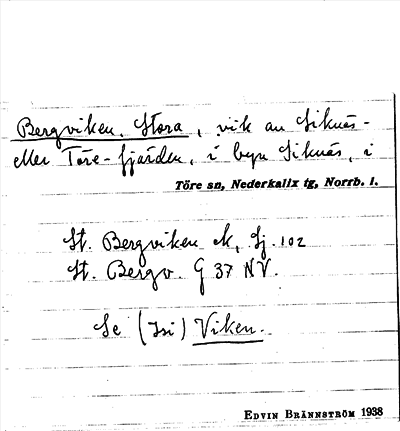 Bergviken, Stora, vik av Siknäs-
eller Töre-fjärden, i byn Siknäs, i
Töre sn, Nederkalix tg, Norrb. l.
St. Bergviken ek, Sj. 102
St. Bergv. G 37 NV.
Se (Isi) Viken.
EDVIN BRÄNNSTRÖM 1938